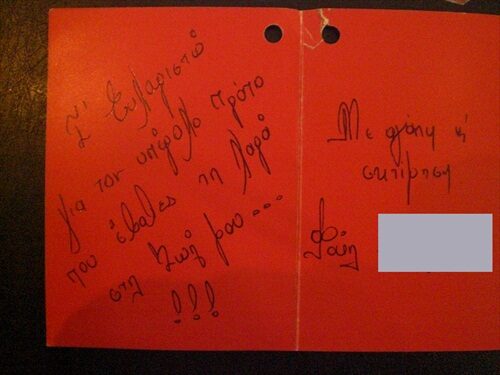 Σ' Ευχαριστώ
για τον υπέροχο τρόπο
που έβαλες τη Χαρά
στη ζωή μου...
!!!
Με αγάπη κ'
εκτίμηση
Φαίη